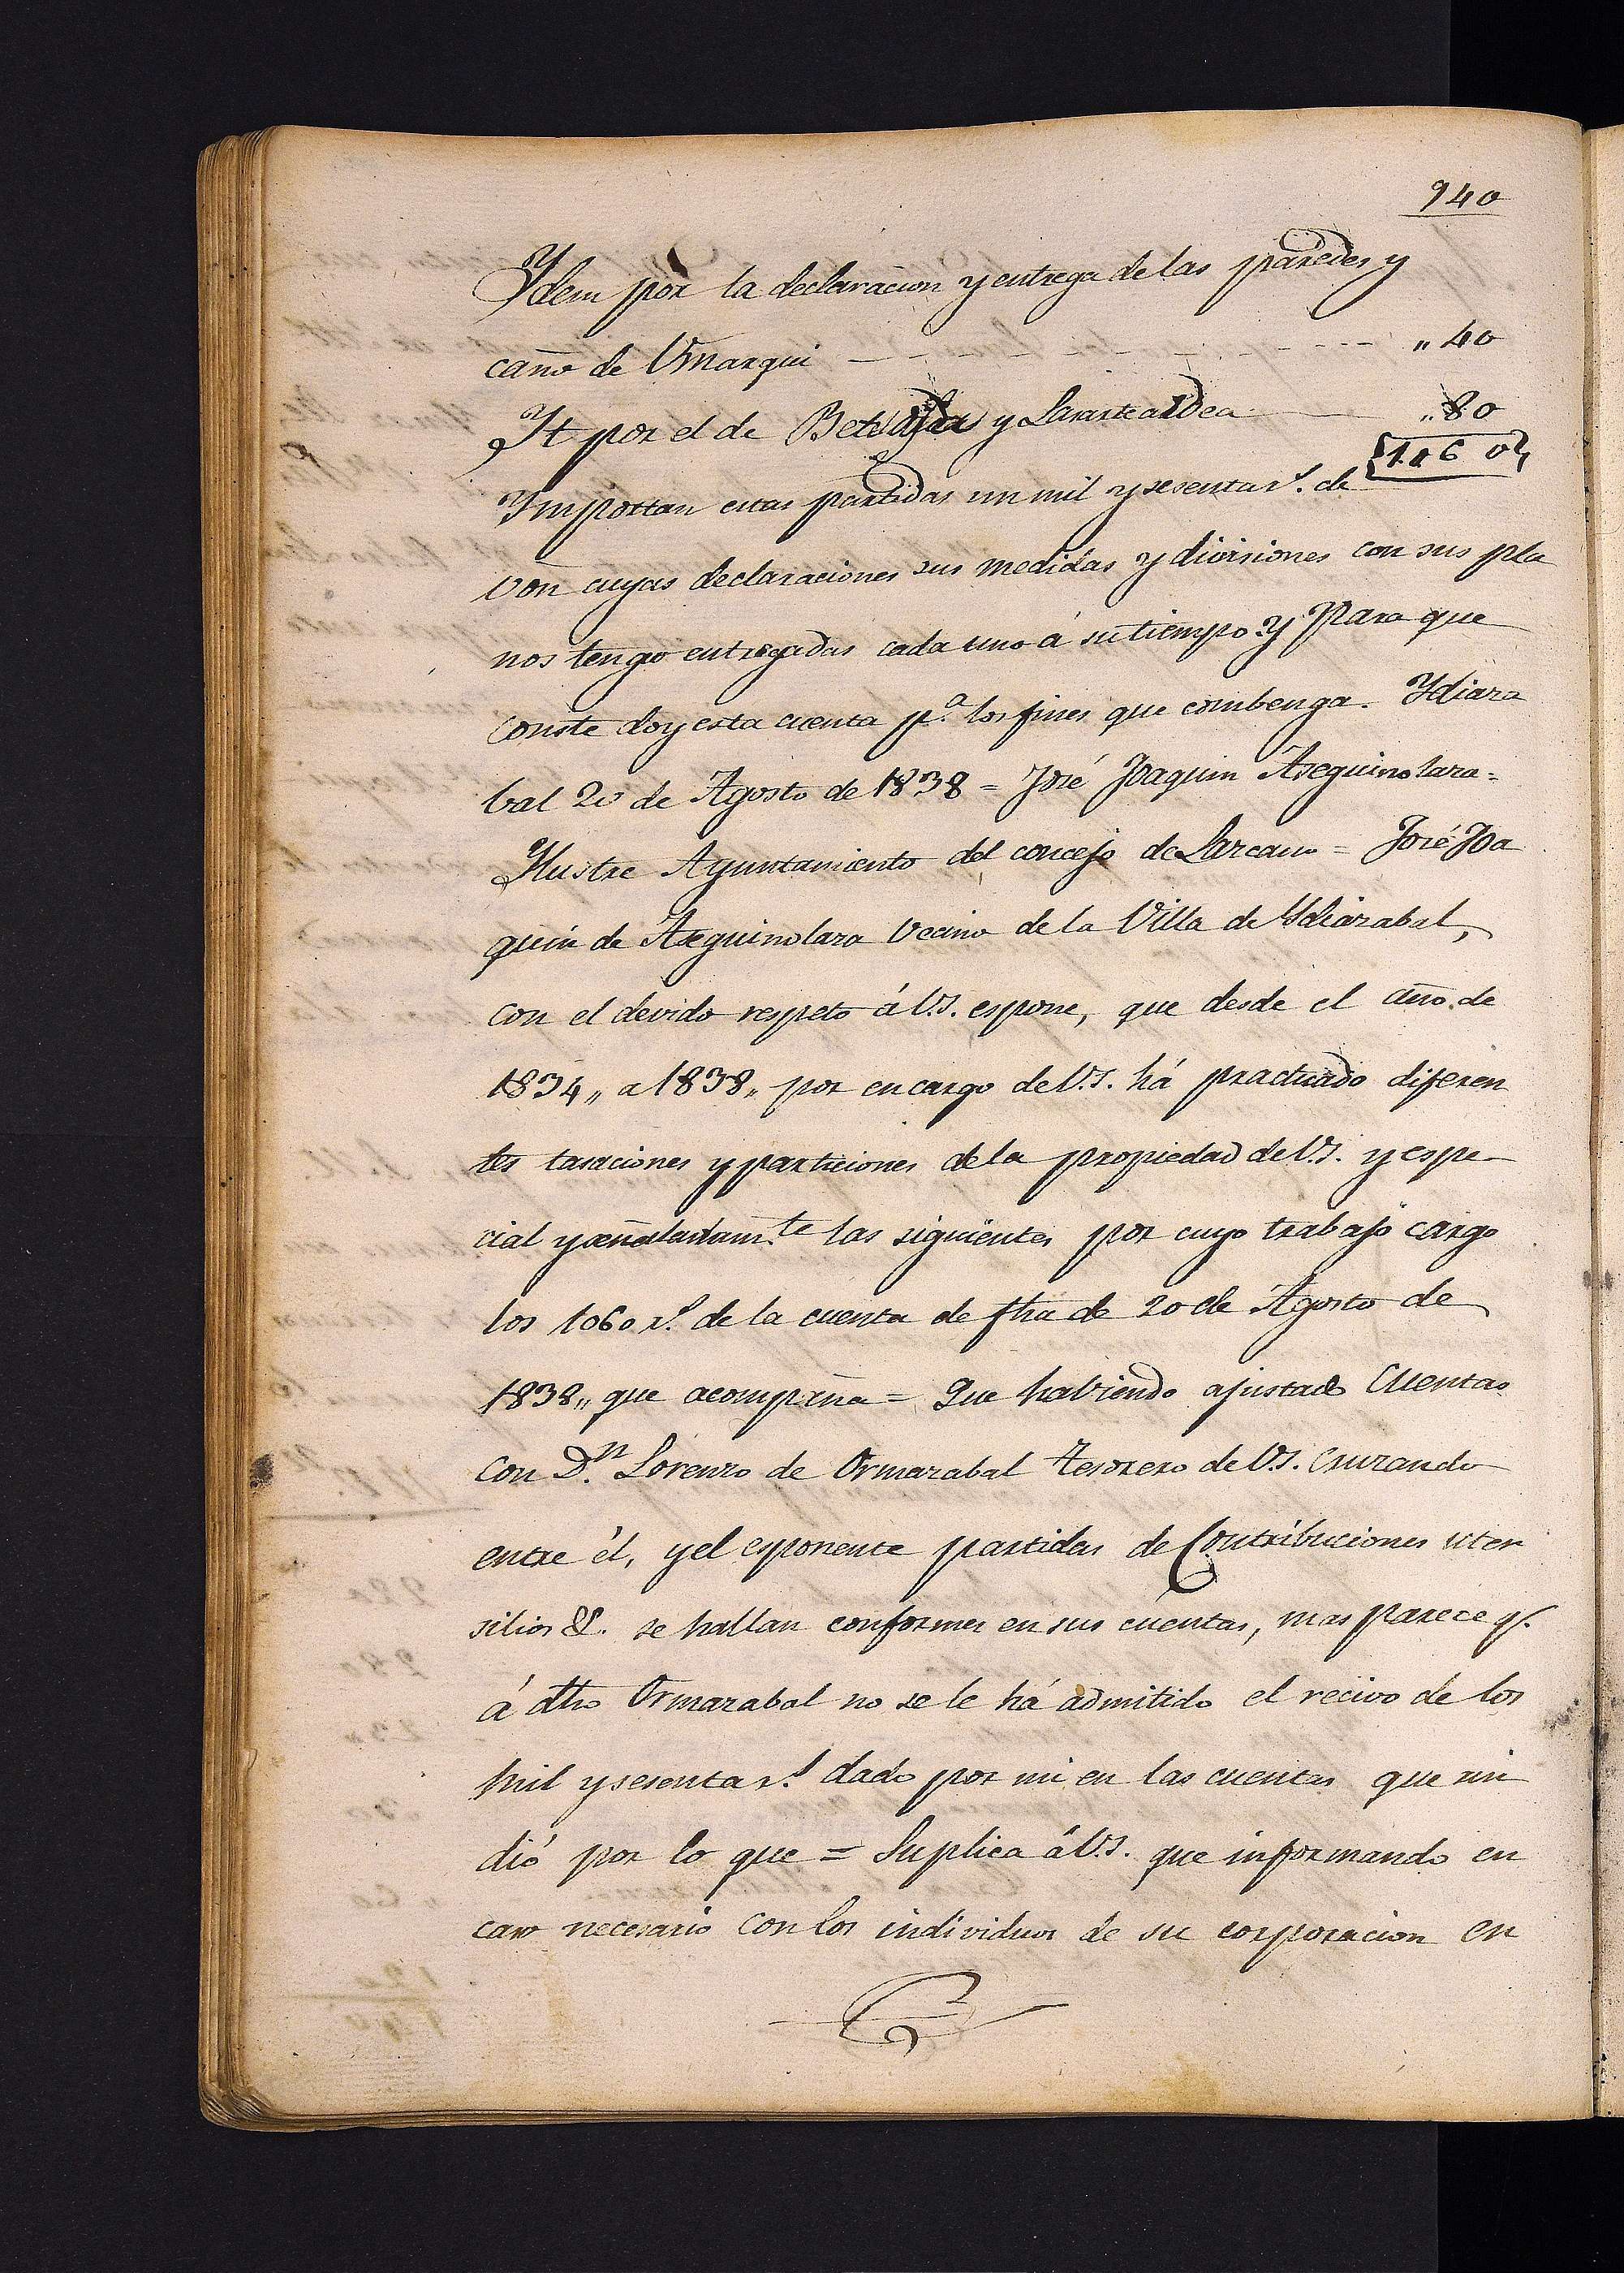 940
Ydem por la declaracion y entrega de las paredes y
caño de Urnarqui - - - - - - - - - - - - - „ 40
Yt por el de y Larartealdea „ 80
1.060
Ymportan estas partidas un mil y sesenta r.s de
von cuyas declaraciones sus medidas y divisiones con sus pla
nos tengo entregadas cada uno á su tiempo. Y para que
conste doy esta cuenta p.a los fines que combenga. Ydiara
bal 20 de Agosto de 1838 = José Joaquin Aseguinolaza =
Ylustre Ayuntamiento del concejo de Lazcano = José Joa
quin de Aseguinolaza vecino de la Villa de Ydiazabal,
con el devido respeto á V.S. espone, que desde el año de
1834 „ a 1838 „ por encargo de V.S. há practicado diferen
tes tasaciones y particiones de la propiedad de V.S. y espe-
cial y señaladam.te las siguientes por cuyo trabajo cargo
los 1060 r.s de la cuenta de fha de 20 de Agosto de
1838 „ que acompaña = Que habiendo ajustado Cuentas
con D.n Lorenzo de Ormazabal Tesorero de V.S. Cruzando
entre él, y el esponente partidas de Contribuciones uten
silios &. se hallan conformes en sus cuentas, mas parece q.e
á dho Ormazabal no se le há admitido el recivo de los
mil y sesenta r.s dado por mi en las cuentas que rin
dió por lo que = Suplica á V.S. que informando en
caso necesario con los individuos de su corporacion en